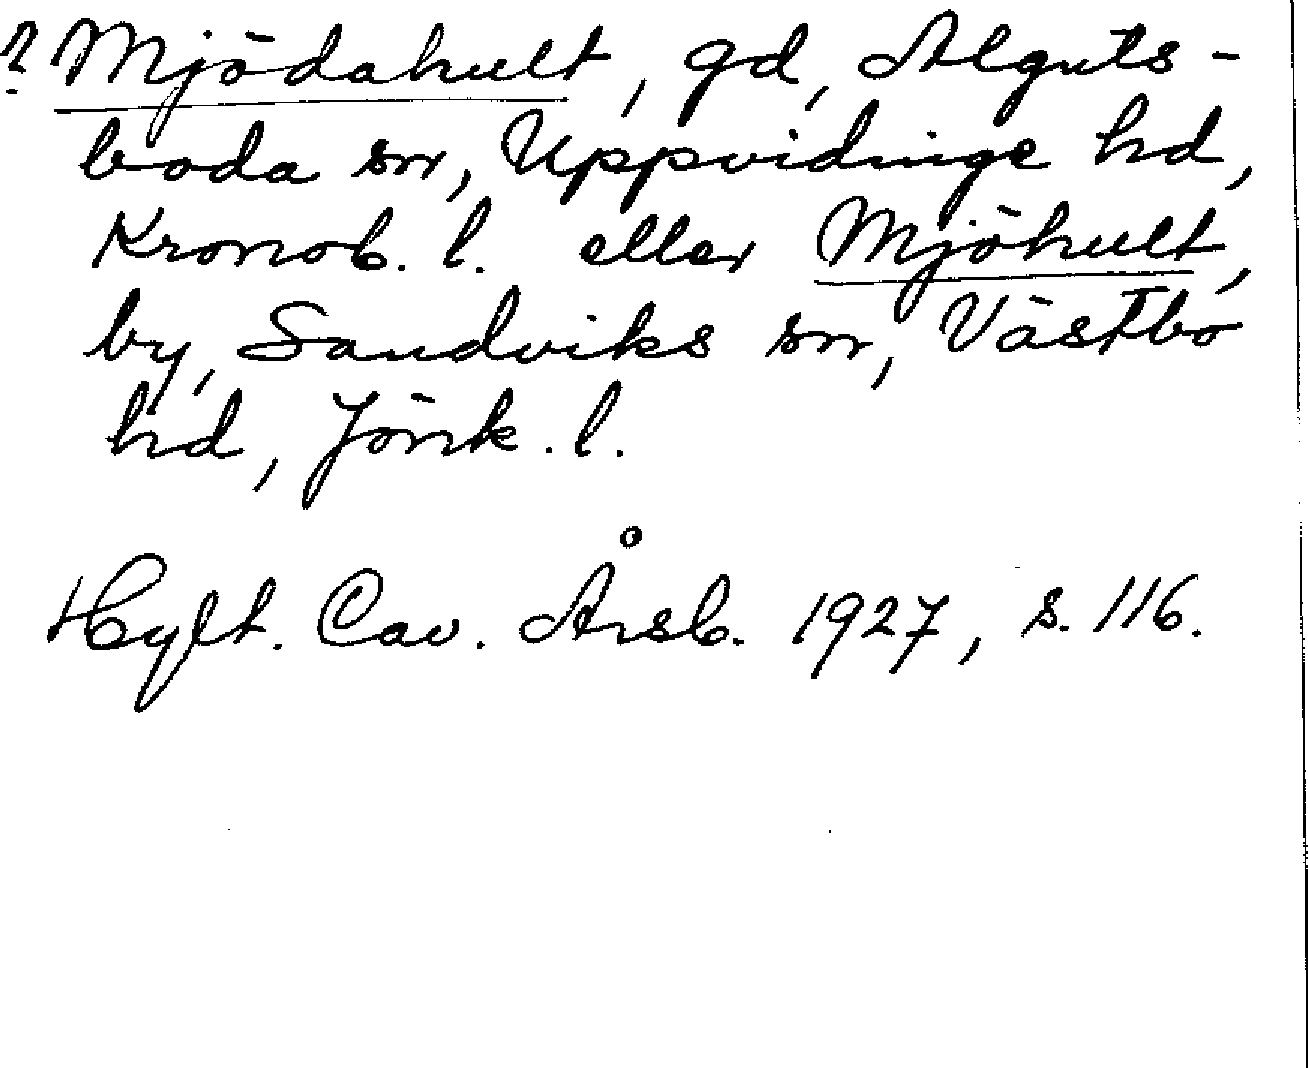 ? Mjödahult, gd, Alguts-
boda sn, Uppvidinge hd,
Kronob. l. eller Mjöhult,
by, Sandviks sn, Västbo
hd, Jönk. l.
Hylt. Cav. Årsb. 1927, s. 116.